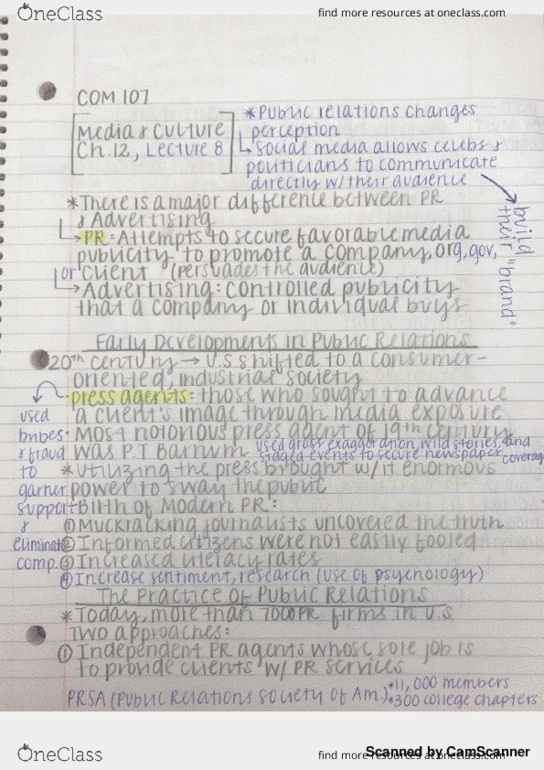 OneClass
find more resources at oneclass.com
COM 107
Media & Culture
Ch.12, Lecture 8
*Public relations changes
perception
↳ Social media allows celebs &
politicians to communicate
directly w/ their audience
build
their "brand"
*There is a major difference between PR
& Advertising
↳ PR: Attempts to secure favorable media
publicity to promote a company, org, gov,
or client (persuades the audience)
↳ Advertising: controlled publicity
that a company or individual buys
Early Developments in Public Relations
20th century → U.S shifted to a consumer-
oriented, industrial society
press agents: those who sought to advance
a client's image through media exposure
used
bribes
& fraud
to
garner
support
&
eliminate
comp.
• Most notorious press agent of 19th century
was P.T Barnum used gross exaggeration, wild stories, and
staged events to secure newspaper coverage
* Utilizing the press brought w/ it enormous
power to sway the public
Birth of Modern PR:
① Muckracking journalists uncovered the truth
② Informed citizens were not easily fooled
③ Increased literacy rates
④ Increase sentiment, research (use of psychology)
The Practice of Public Relations
* Today, more than 7000 PR firms in U.S
Two approaches:
① Independent PR agents whose sole job is
to provide clients w/ PR services
PRSA (Public Relations Society of Am.) *11,000 members
*300 college chapters
OneClass
find more resources at oneclass.com
Scanned by CamScanner